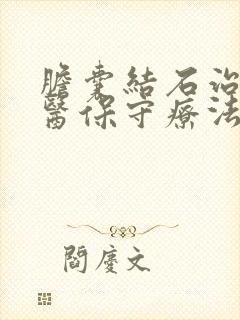 膽囊結石治
醫保守療法
閻慶文